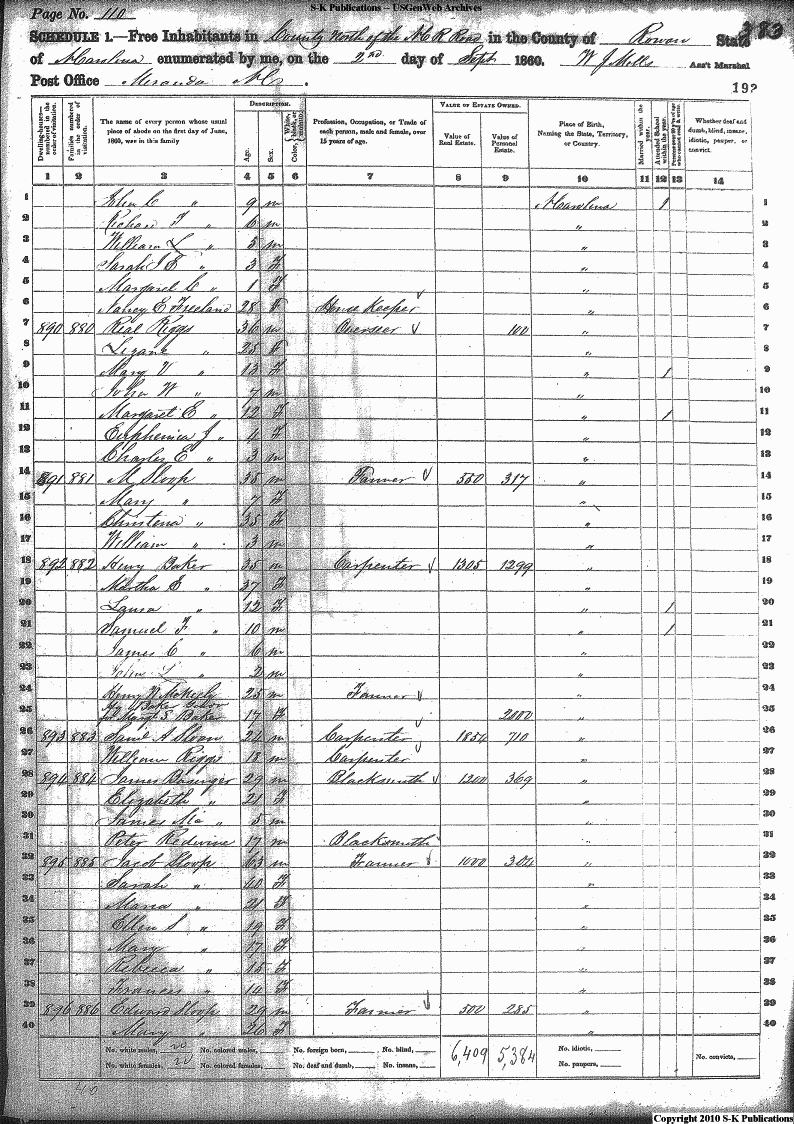 S-K Publications -- USGenWeb Archives
Page No. 110
383
SCHEDULE 1.—Free Inhabitants in County North of the N C R Road in the County of Rowan State
of N Carolina enumerated by me, on the 2nd day of Sept 1860. Ass't Marshal
Post Office Miranda N C
Dwelling-house—numbered in the order of visitation. Families numbered in the order of visitation. The name of every person whose usual place of abode on the first day of June, 1860, was in this family Description. Age. Sex. Color, White, black, or mulatto. Profession, Occupation, or Trade of each person, male and female, over 15 years of age. Value of Estate Owned. Value of Real Estate. Value of Personal Estate. Place of Birth, Naming the State, Territory, or Country. Married within the year. Attended School within the year. Whether deaf and dumb, blind, insane, idiotic, pauper, or convict.
1 2 3 4 5 6 7 8 9 10 11 12 13 14
1 John C " 9 m N Carolina 1 1
2 Richard F " 6 m " 2
3 William L " 5 m " 3
4 Sarah J E " 3 f " 4
5 Margaret C " 1 f " 5
6 Nancy E Freeland 28 f House Keeper " 6
7 890 880 Real Riggs 36 m Overseer 100 " 7
8 " 25 f " 8
9 Mary V " 13 f " 1 9
10 John W " 7 m " 10
11 Margaret E " 12 f " 1 11
12 J " 4 f " 12
13 Charles E " 3 m " 13
14 891 881 M Sloop 35 m Farmer 550 317 " 14
15 Mary " 7 f " 15
16 Christena " 35 f " 16
17 William " 3 m " 17
18 892 882 Henry Baker 35 m Carpenter 1305 1299 " 18
19 Martha E " 37 f " 19
20 Laura " 12 f " 1 20
21 Samuel F " 10 m " 1 21
22 James C " 6 m " 22
23 John L " 2 m " 23
24 Henry W 25 m Farmer " 24
25 Hy Baker for Mary S Baker 17 f 2000 " 25
26 893 883 Saml A Sloan 24 m Carpenter 1854 710 " 26
27 William Riggs 18 m Carpenter " 27
28 894 884 James Basinger 29 m Blacksmith 1200 369 " 28
29 Elizabeth " 21 f " 29
30 James Mc " 5 m " 30
31 Peter Redwine 17 m Blacksmith " 31
32 895 885 Jacob Sloop 63 m Farmer 1000 304 " 32
33 Sarah " 40 f " 33
34 Maria " 21 f " 34
35 Ellen S " 19 f " 35
36 Mary " 17 f " 36
37 Rebecca " 15 f " 37
38 Frances " 14 f " 38
39 896 886 Edward Sloop 29 m Farmer 500 285 " 39
40 Mary " 36 f " 40
No. white males, 20 No. colored males, No. foreign born, No. blind, 6,409 5,384 No. idiotic,
No. white females, 20 No. colored females, No. deaf and dumb, No. insane, No. paupers, No. convicts,
40
Copyright 2010 S-K Publications